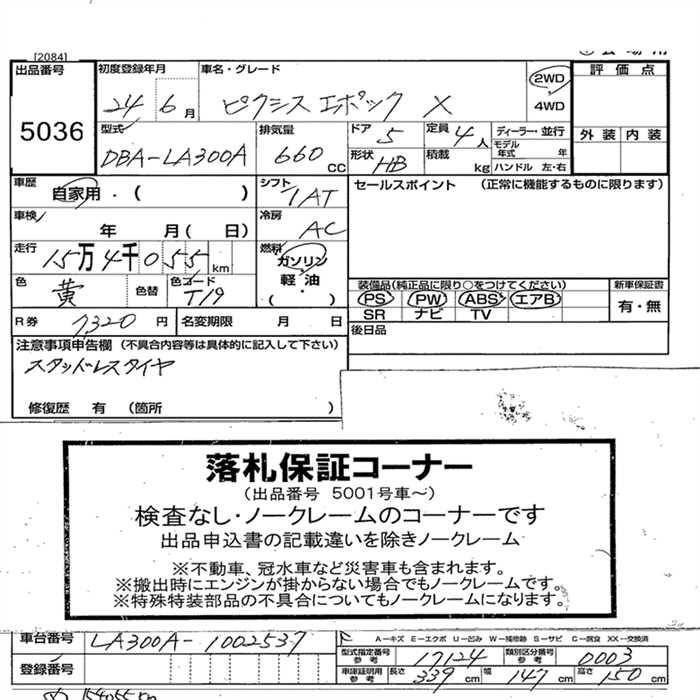 [2084]
出品番号 5036
初度登録年月 24 6月
車名・グレード ピクシス エポック X
2WD
4WD
評価点
外装 内装
型式 DBA-LA300A
排気量 660 CC
ドア 5
定員 4人
形状 HB
積載 kg
ディーラー・並行
モデル年式 年
ハンドル 左・右
車歴 自家用・( )
シフト 1AT
セールスポイント (正常に機能するものに限ります)
車検 年 月( 日)
冷房 AC
走行 15万4千055km
燃料 ガソリン・軽油・( )
色 黄 色替 色コード T19
装備品(純正品に限り○をつけてください)
PS PW ABS エアB
SR ナビ TV
新車保証書 有・無
R券 7320円 名変期限 月 日
後日品
注意事項申告欄 (不具合内容等は具体的に記入して下さい)
スタッドレスタイヤ
修復歴 有 (箇所 )
落札保証コーナー
(出品番号 5001号車～)
検査なし・ノークレームのコーナーです
出品申込書の記載違いを除きノークレーム
※不動車、冠水車など災害車も含まれます。
※搬出時にエンジンが掛からない場合でもノークレームです。
※特殊特装部品の不具合についてもノークレームになります。
車台番号 LA300A-1002537
A－キズ E－エクボ U－凹み W－補修跡 S－サビ C－腐食 XX－交換済
型式指定番号 参考 17124 類別区分番号 参考 0003
登録番号
車庫証明用 参考 長さ 339cm 幅 147cm 高さ 150cm